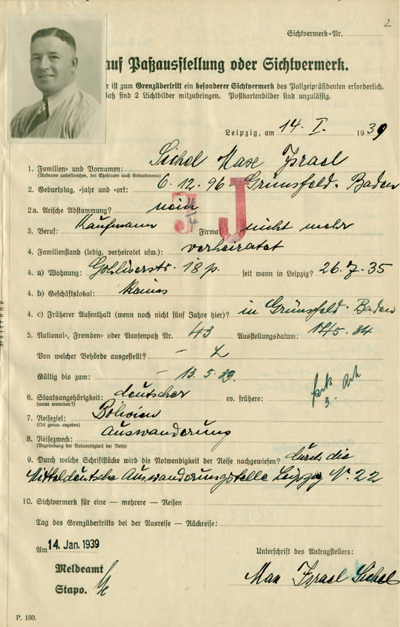 2
Sichtvermerk-Nr.
auf Paßausstellung oder Sichtvermerk.
er ist zum Grenzübertritt ein besonderer Sichtvermerk des Polizeipräsidenten erforderlich.
Paß sind 2 Lichtbilder mitzubringen. Postkartenbilder sind unzulässig.
Leipzig, am 14. I. 1939
1. Familien- und Vornamen: Sichel Max Israel
2. Geburtstag, -jahr und -ort: 6. 12. 96 Grünsfeld. Baden
2a. Arische Abstammung? nein
J
3. Beruf: Kaufmann Firma: nicht mehr
4. Familienstand (ledig, verheiratet usw.): verheiratet
4. a) Wohnung: Gohliserstr. 18 p. seit wann in Leipzig? 26. 7. 35
4. b) Geschäftslokal: keines
4. c) Früherer Aufenthalt (wenn noch nicht fünf Jahre hier)? in Grünsfeld. Baden
5. National-, Fremden- oder Bunenpaß Nr. 43 Ausstellungsdatum: 14/5. 34
Von welcher Behörde ausgestellt? - L
Gültig bis zum - 13. 5. 39.
6. Staatsangehörigkeit: deutscher ev. frühere:
7. Reiseziel: Bolivien
8. Reisezweck: Auswanderung
9. Durch welche Schriftstücke wird die Notwendigkeit der Reise nachgewiesen? durch die
Mitteldeutsche Auswanderungsstelle Leipzig Nr. 22
10. Sichtvermerk für eine — mehrere — Reisen
Tag des Grenzübertritts bei der Ausreise - Rückreise:
Am 14. Jan. 1939 Unterschrift des Antragstellers:
Meldeamt
Stapo.
Max Israel Sichel
P. 180.